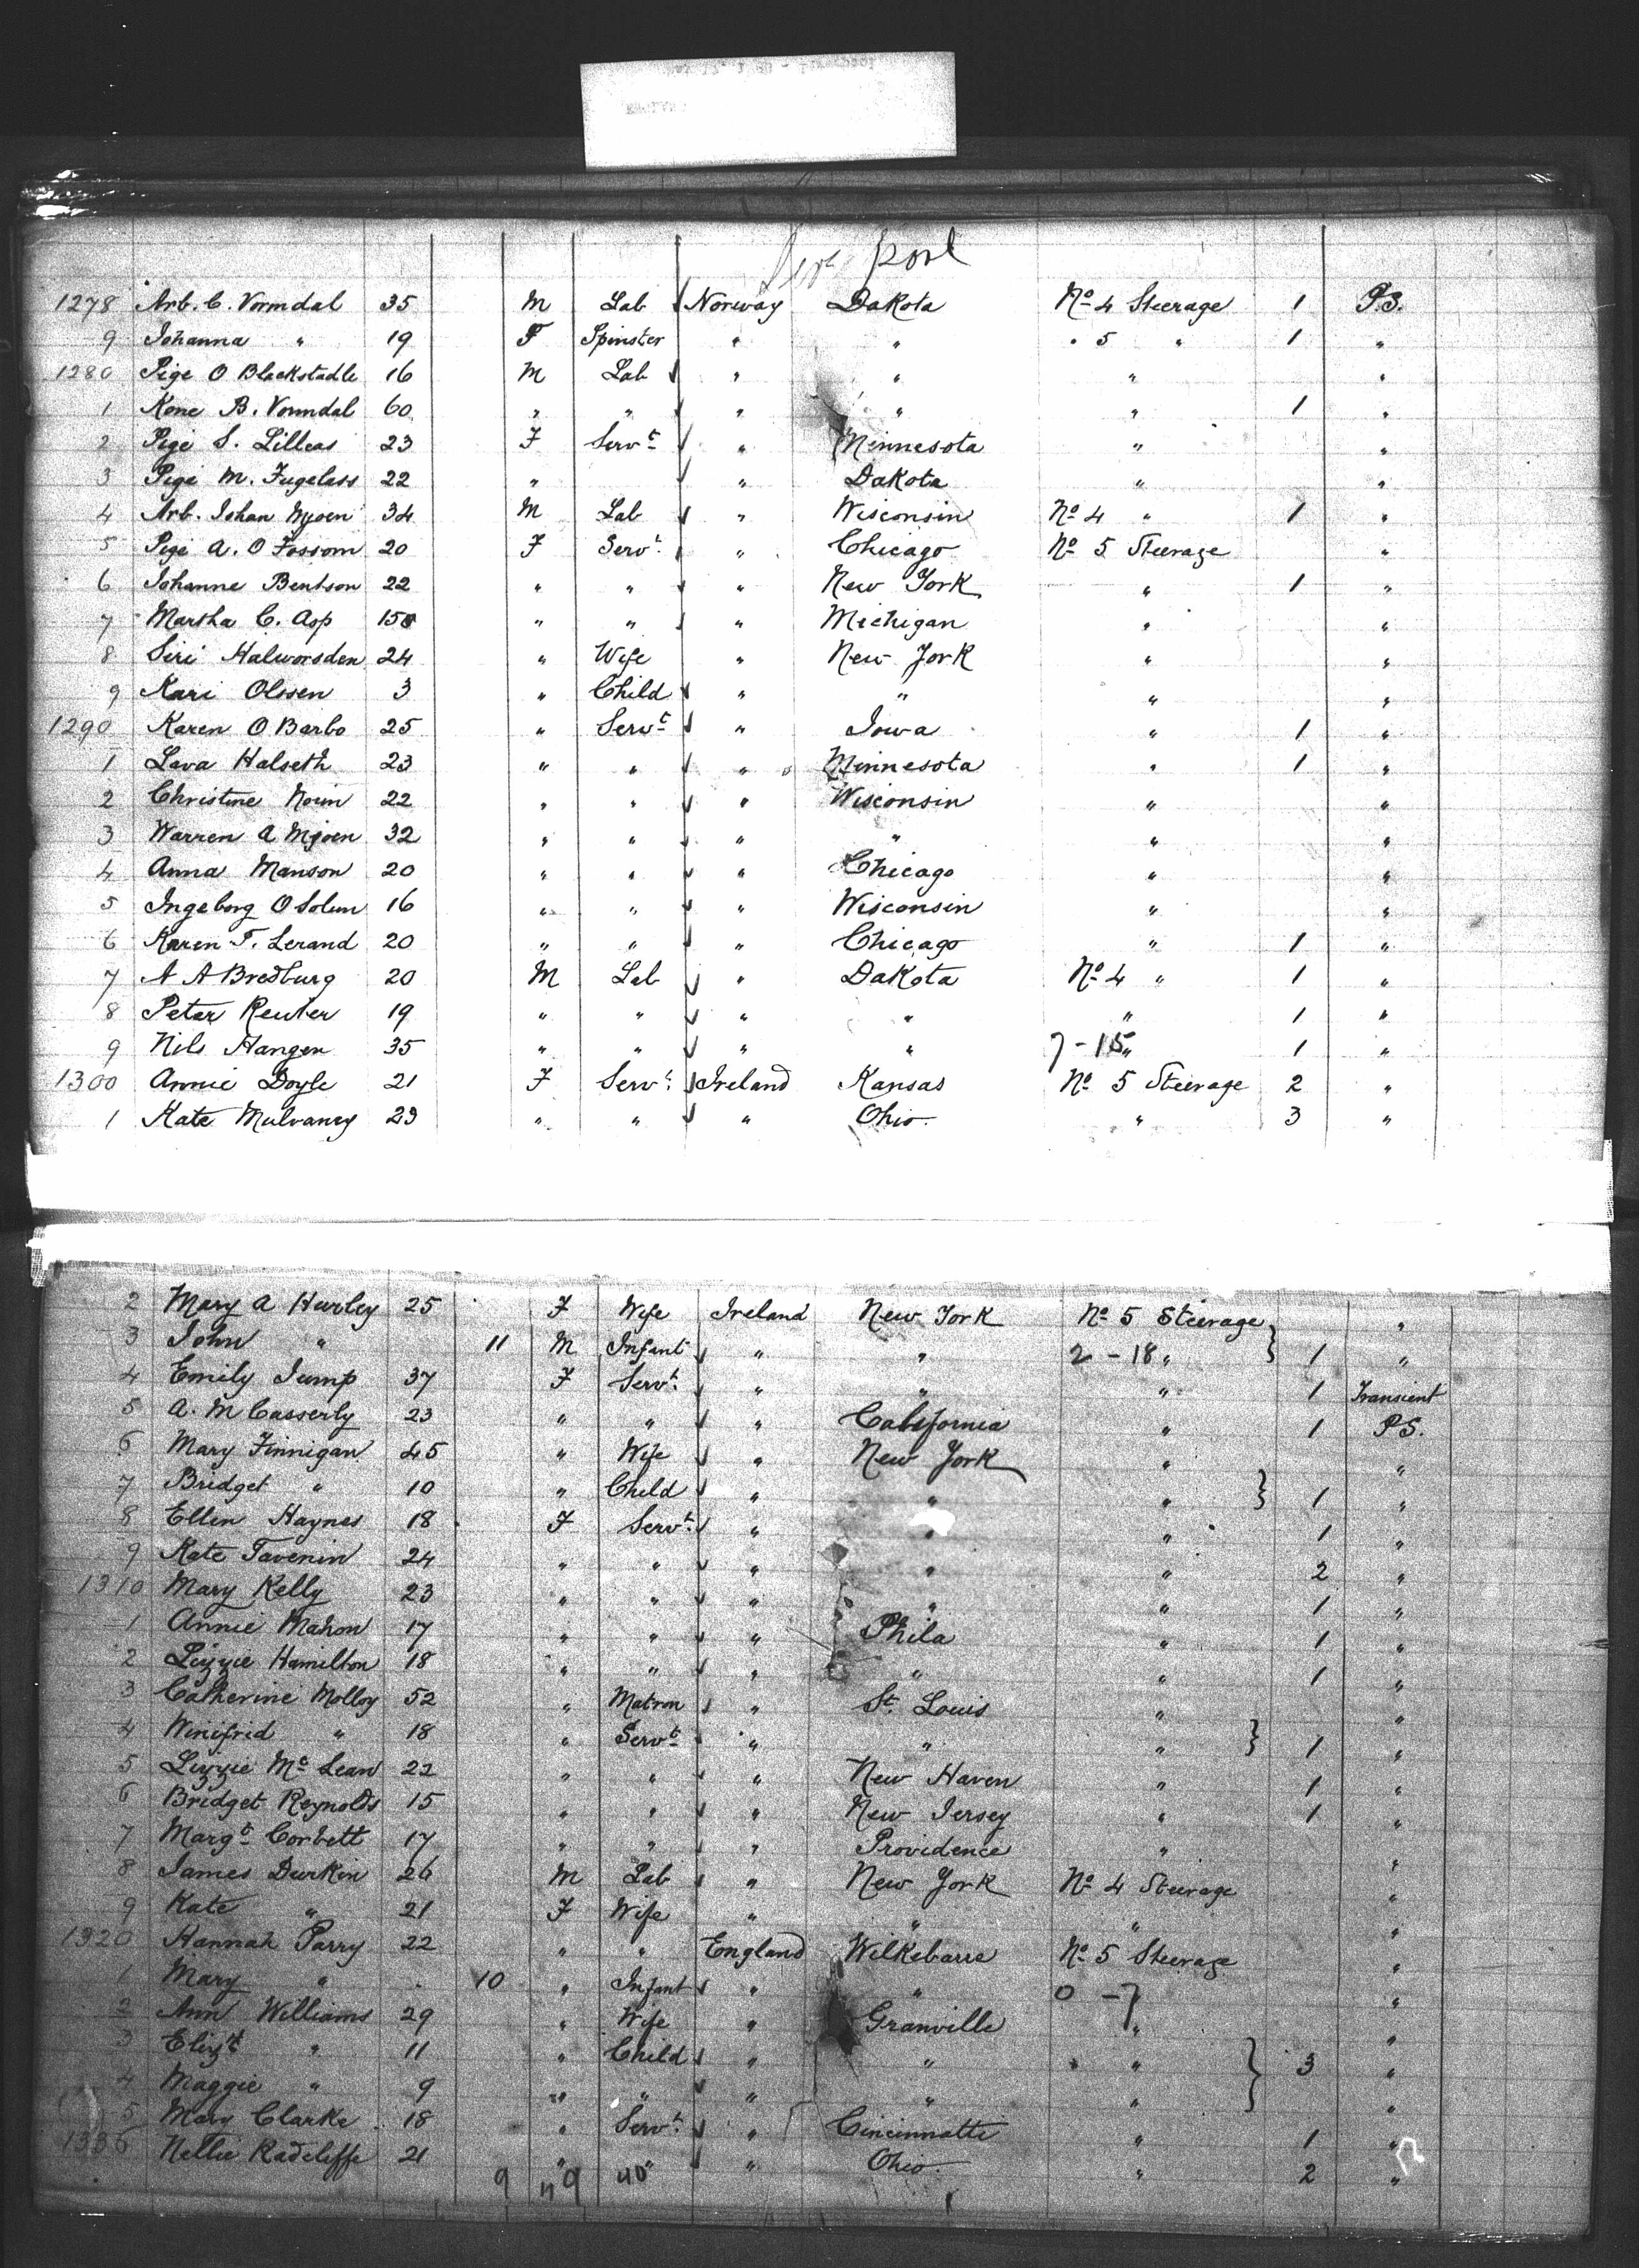 port
1278 Arb. C. Vormdal 35 M Lab Norway Dakota No 4 Steerage 1 P.S.
9 Johanna " 19 F Spinster " " " 5 " 1 "
1280 Pige O Blackstadle 16 M Lab " " " "
1 Kone B. Vormdal 60 " " " " " 1 "
2 Pige S. Lilleas 23 F Servt " Minnesota " "
3 Pige M. Fugelass 22 " " Dakota " "
4 Arb. Johan Mjoen 34 M Lab " Wisconsin No 4 " 1 "
5 Pige A. O Fossom 20 F Servt " Chicago No 5 Steerage "
6 Johanne Bentson 22 " " " New York " 1 "
7 Martha C. Asp 15 " " " Michigan " "
8 Siri Halworsden 24 " Wife " New York " "
9 Kari Olssen 3 " Child " " " "
1290 Karen O Barbo 25 " Servt " Iowa " 1 "
1 Lava Halseth 23 " " " Minnesota " 1 "
2 Christine Norin 22 " " " Wisconsin " "
3 Warren A Mjoen 32 " " " " " "
4 Anna Manson 20 " " " Chicago " "
5 Ingeborg O Solum 16 " " " Wisconsin " "
6 Karen T. Lerand 20 " " " Chicago " 1 "
7 A A Bredburg 20 M Lab " Dakota No 4 " 1 "
8 Peter Reuter 19 " " " " " 1 "
9 Nils Hangen 35 " " " " 7-15 " 1 "
1300 Annie Doyle 21 F Servt Ireland Kansas No 5 Steerage 2 "
1 Kate Mulvaney 23 " " " Ohio. " 3 "
2 Mary A Hurley 25 F Wife Ireland New York No 5 Steerage "
3 John " 11 M Infant " " 2-18 " } 1 "
4 Emily Jump 37 F Servt " " " 1 Transient
5 A. M Casserly 23 " " " California " 1 P.S.
6 Mary Finnigan 45 " Wife " New York " "
7 Bridget " 10 " Child " " " } 1 "
8 Ellen Haynes 18 F Servt " " " 1 "
9 Kate Tavenin 24 " " " " " 2 "
1310 Mary Kelly 23 " " " " " 1 "
1 Annie Mahon 17 " " " Phila " 1 "
2 Lizzie Hamilton 18 " " " " " 1 "
3 Catherine Molloy 52 " Matron " St. Louis " "
4 Winifrid " 18 " Servt " " " } 1 "
5 Lizzie Mc Lean 22 " " " New Haven " 1 "
6 Bridget Reynolds 15 " " " New Jersey " 1 "
7 Margt Corbett 17 " " " Providence " "
8 James Durkin 26 M Lab " New York No 4 Steerage "
9 Kate " 21 F Wife " " " "
1320 Hannah Parry 22 " " England Wilkebarre No 5 Steerage "
1 Mary " 10 " Infant " " 0-7 "
2 Ann Williams 29 " Wife " Granville " "
3 Elizt " 11 " Child " " " } 3 "
4 Maggie " 9 " " " " " "
5 Mary Clarke 18 " Servt " Cincinnatti " 1 "
1336 Nellie Radcliffe 21 " " " Ohio. " 2 "
9 49 40